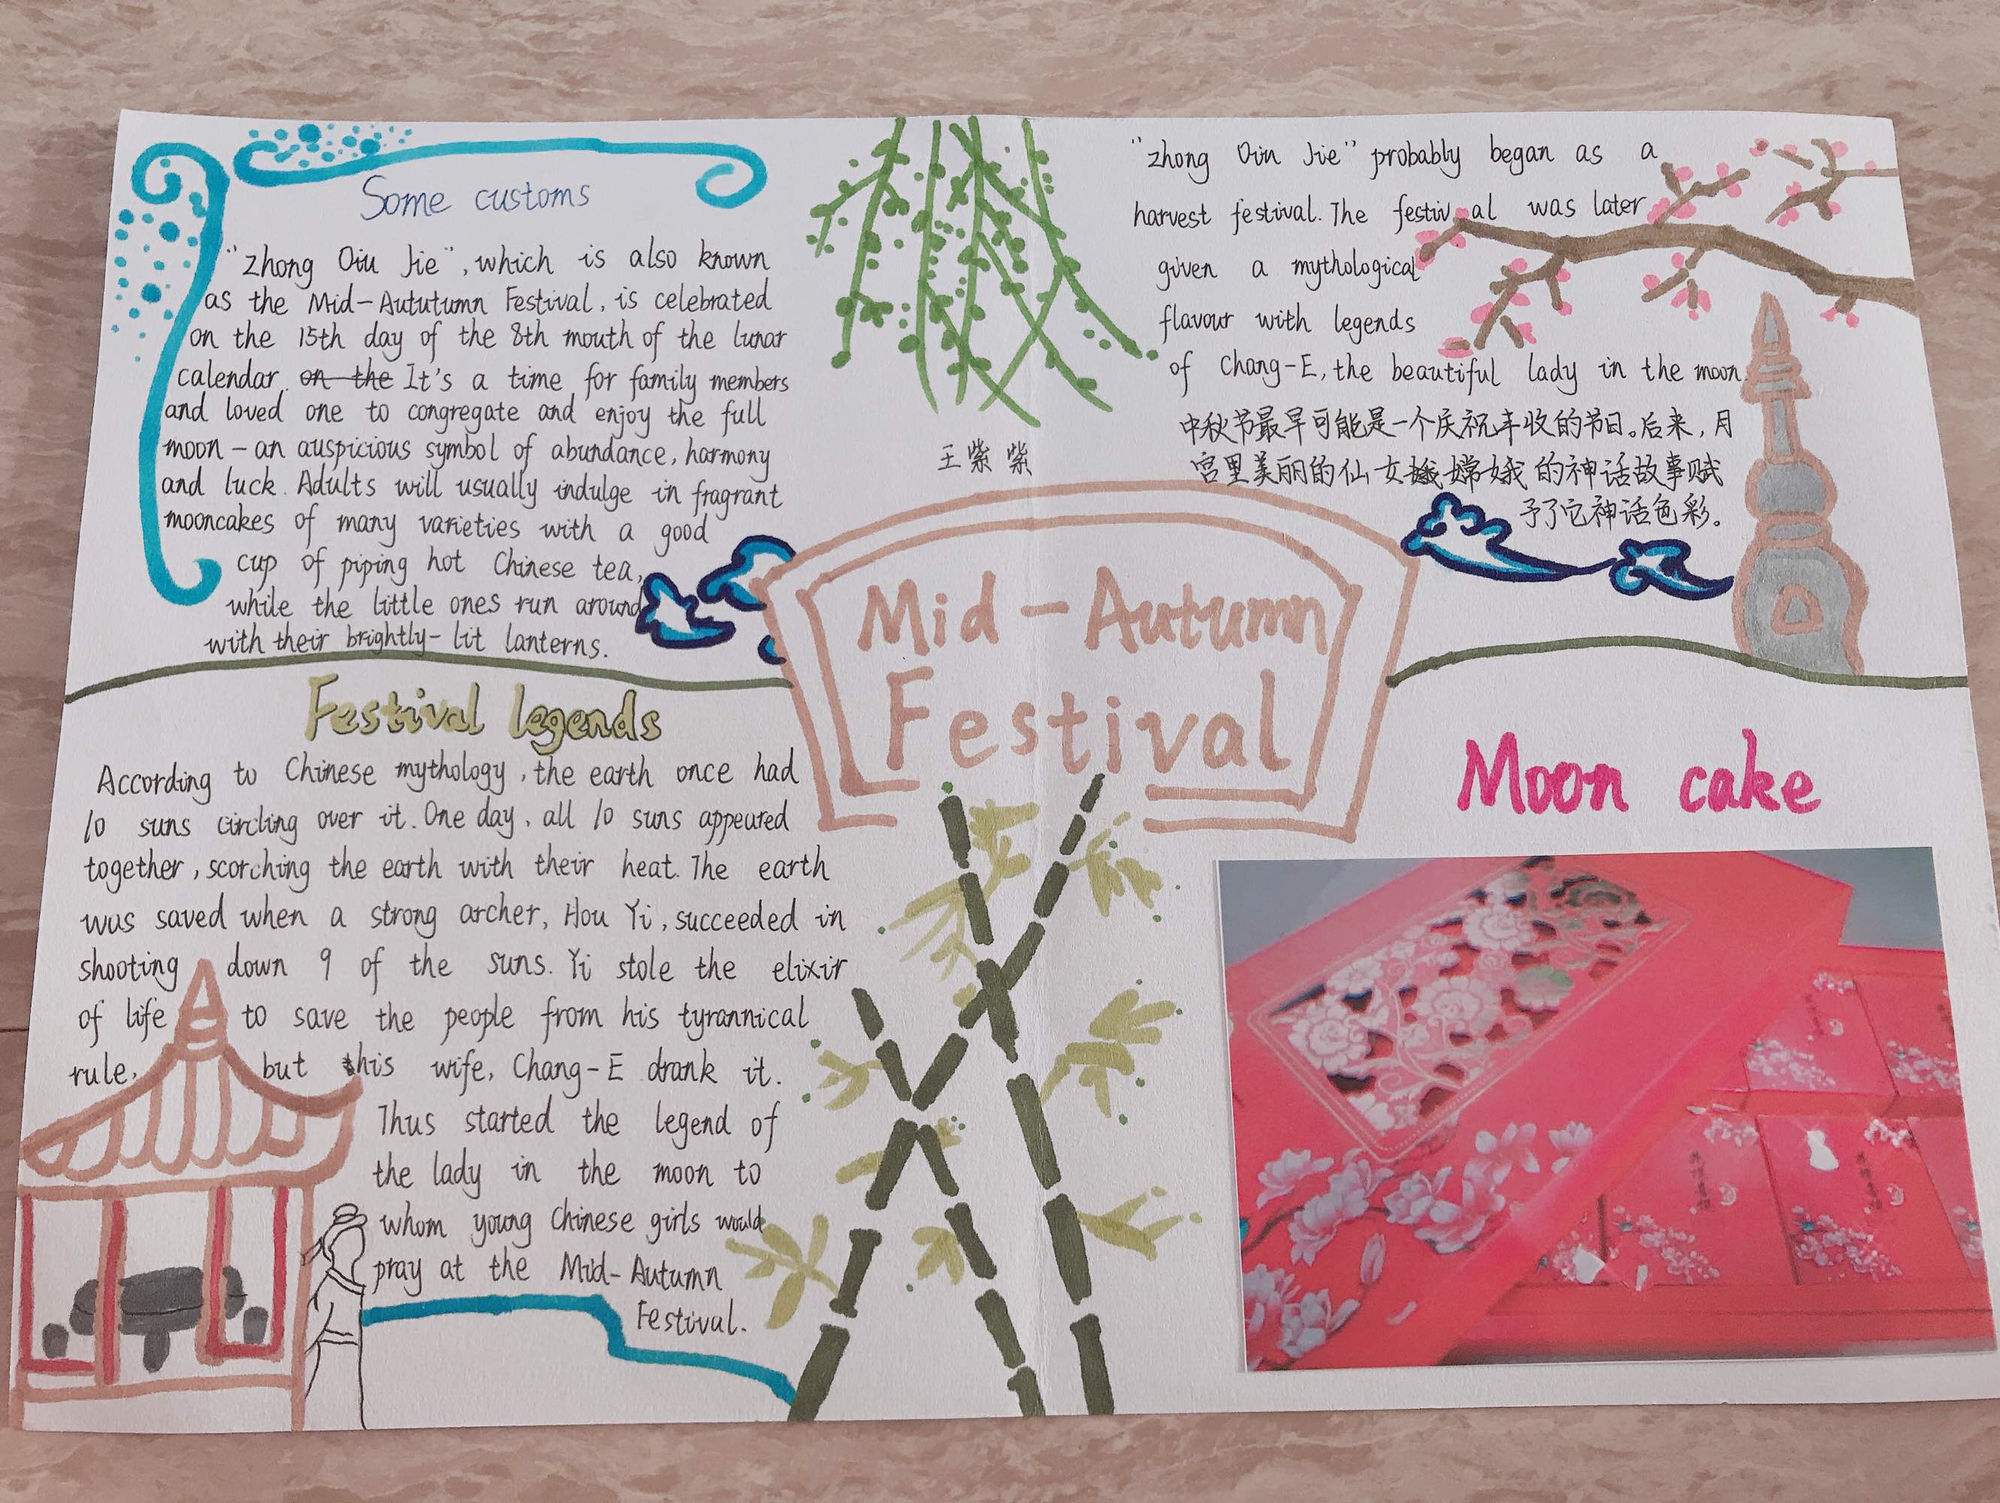 Some customs
"zhong Qiu Jie", which is also known
as the Mid-Aututumn Festival, is celebrated
on the 15th day of the 8th mouth of the lunar
calendar. on the It's a time for family members
and loved one to congregate and enjoy the full
moon - an auspicious symbol of abundance, harmony
and luck. Adults will usually indulge in fragrant
mooncakes of many varieties with a good
cup of piping hot Chinese tea,
while the little ones run around
with their brightly-lit lanterns.
Festival legends
According to Chinese mythology, the earth once had
10 suns circling over it. One day, all 10 suns appeared
together, scorching the earth with their heat. The earth
was saved when a strong archer, Hou Yi, succeeded in
shooting down 9 of the suns. Yi stole the elixir
of life to save the people from his tyrannical
rule, but his wife, Chang-E drank it.
Thus started the legend of
the lady in the moon to
whom young Chinese girls would
pray at the Mid-Autumn
Festival.
王紫紫
Mid-Autumn
Festival
"zhong Qiu Jie" probably began as a
harvest festival. The festival was later
given a mythological
flavour with legends
of Chang-E, the beautiful lady in the moon.
中秋节最早可能是一个庆祝丰收的节日。后来，月
宫里美丽的仙女嫦娥的神话故事赋
予了它神话色彩。
Moon cake